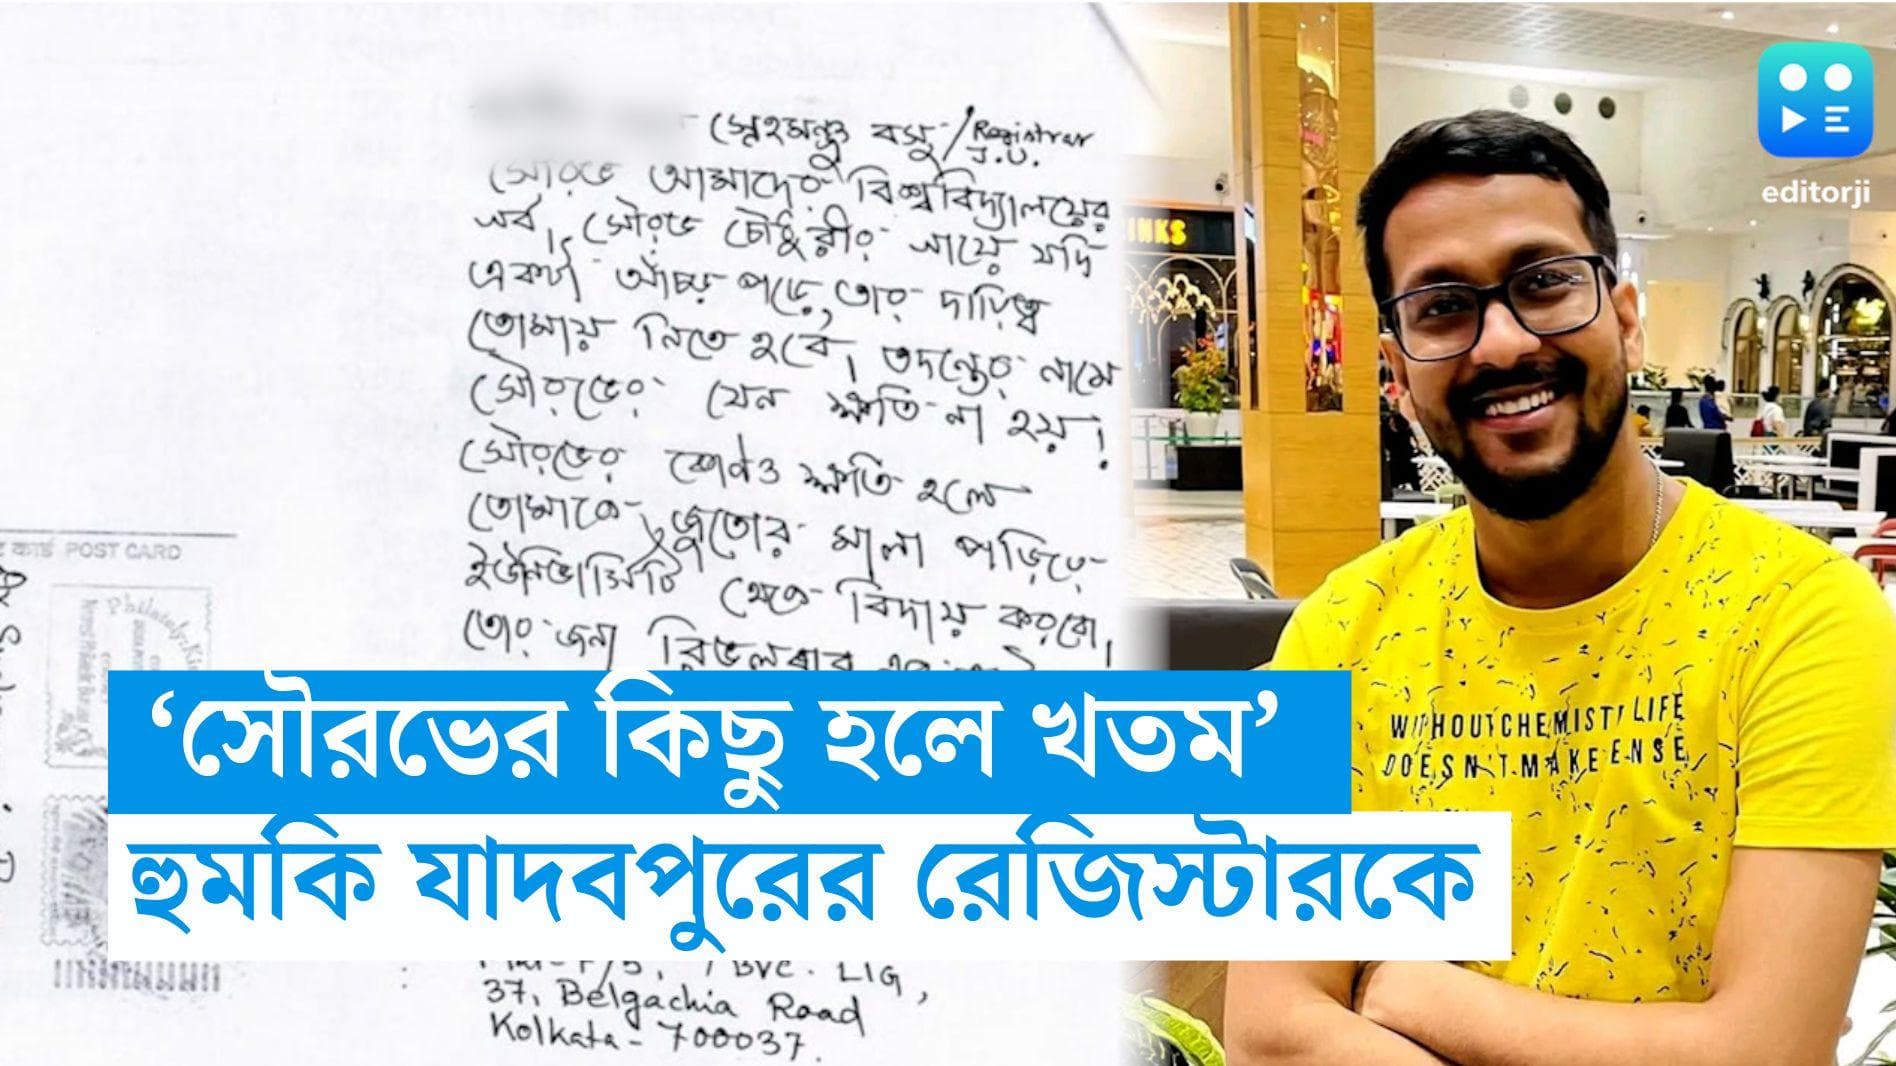 স্নেহমঞ্জু বসু / Registrar
J.U.
সৌরভ আমাদের বিশ্ববিদ্যালয়ের
গর্ব, সৌরভ চৌধুরীর গায়ে যদি
একটা আঁচড় পড়ে, তার দায়িত্ব
তোমায় নিতে হবে। তদন্তের নামে
সৌরভের যেন ক্ষতি না হয়।
সৌরভের কোনও ক্ষতি হলে
তোমাকে জুতোর মালা পড়িয়ে
ইউনিভার্সিটি থেকে বিদায় করবো।
তোর জন্য রিভলবার
POST CARD
‘সৌরভের কিছু হলে খতম’
হুমকি যাদবপুরের রেজিস্টারকে
LIG,
37, Belgachia Road
Kolkata - 700037.
INKS
editorji
WITHOUT CHEMISTRY LIFE
DOESN'T MAKE ENSE